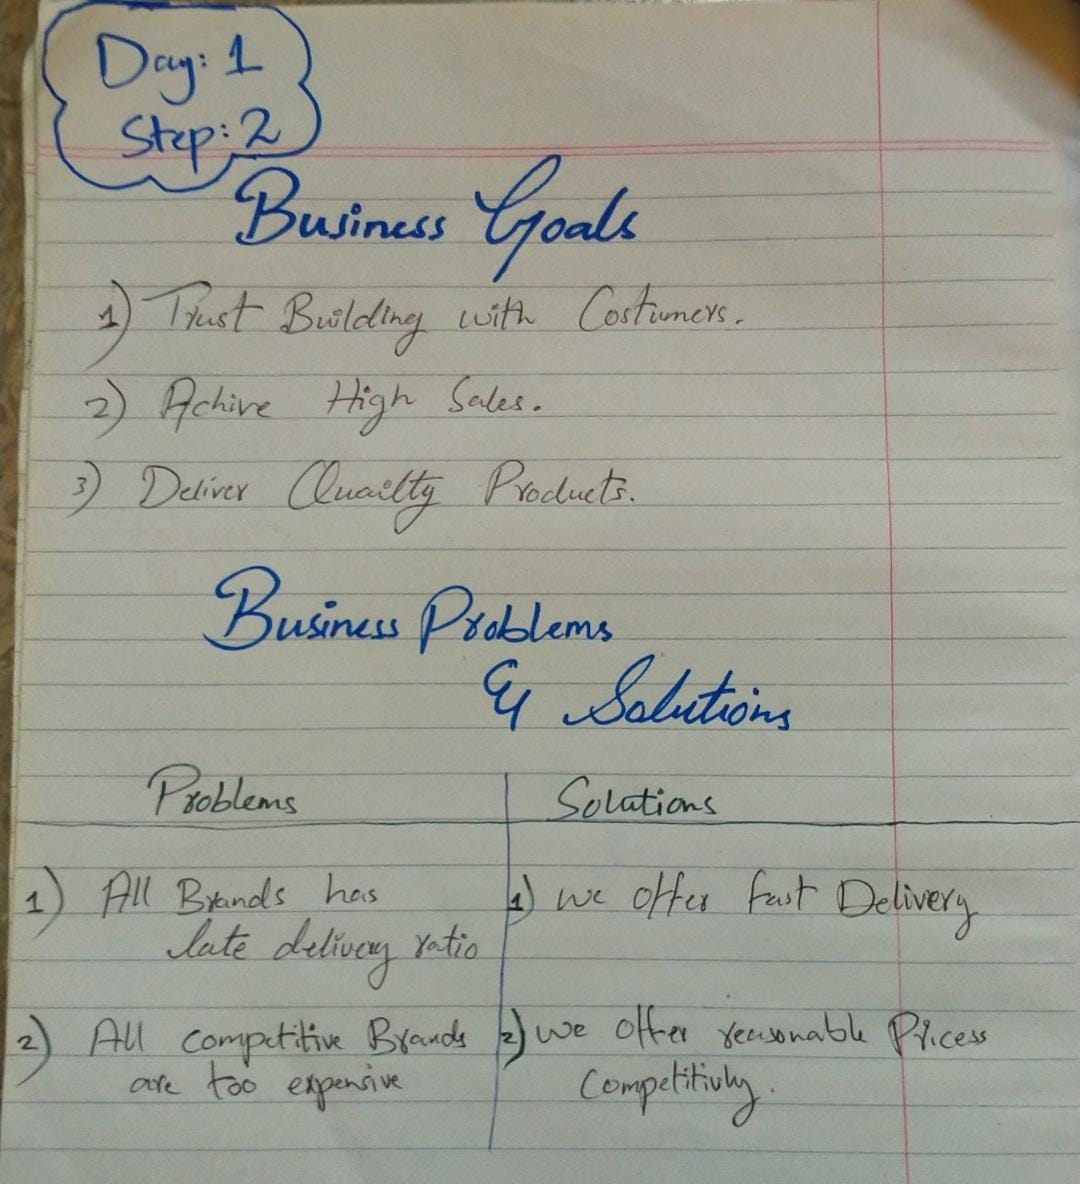 Day: 1
Step: 2
Business Goals
1) Trust Building with Costumers.
2) Achive High Sales.
3) Deliver Quailty Products.
Business Problems
& Solutions
Problems
Solutions
1) All Brands has
late delivery ratio
1) we offer fast Delivery
2) All competitive Brands
are too expensive
2) we offer reasonable Pricess
Competitivly.